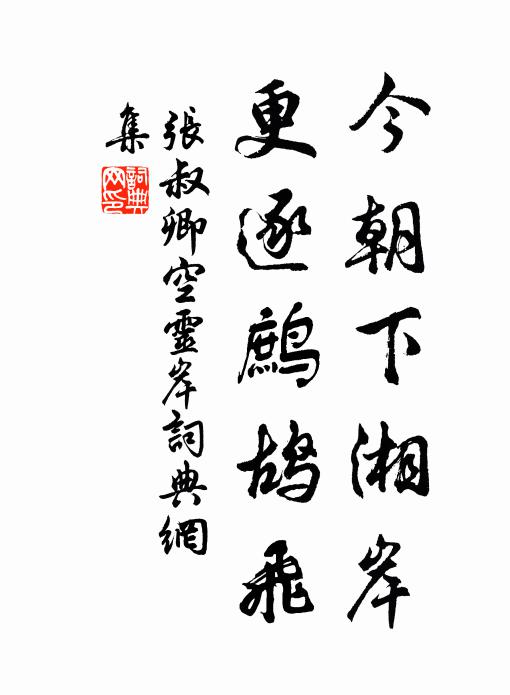 今朝下湘岸
更逐鷓鴣飛
張叔卿空靈岸詞典網
集
詞典
网印